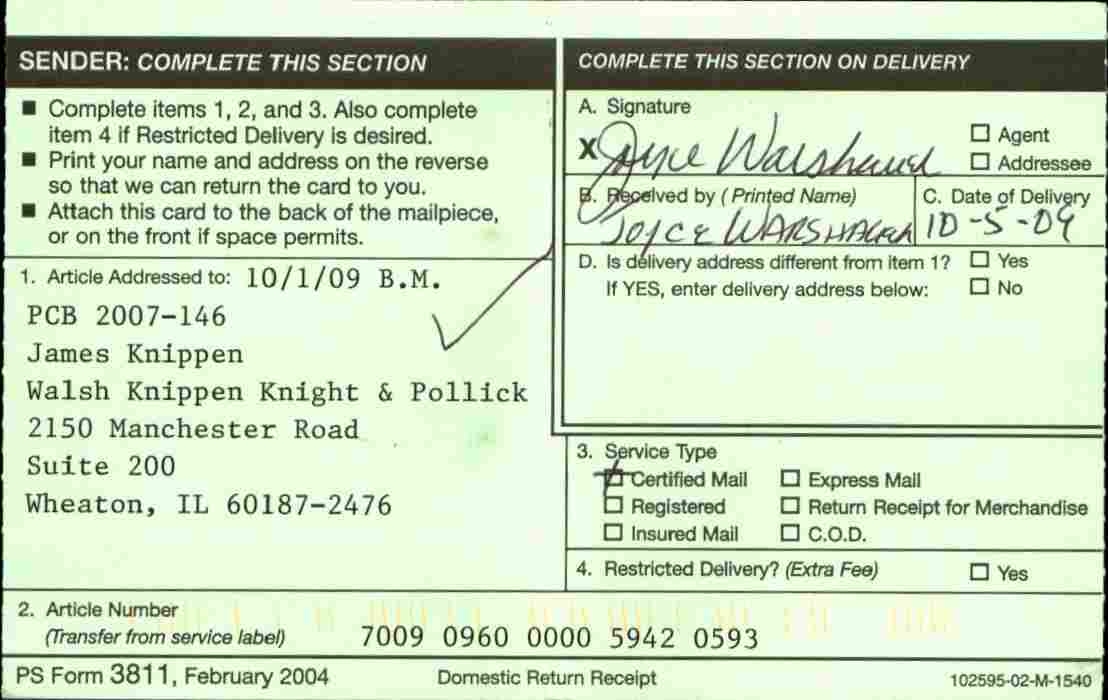 SENDER: COMPLETE THIS SECTION
■ Complete items 1, 2, and 3. Also complete
item 4 if Restricted Delivery is desired.
■ Print your name and address on the reverse
so that we can return the card to you.
■ Attach this card to the back of the mailpiece,
or on the front if space permits.
1. Article Addressed to: 10/1/09 B.M.
PCB 2007-146
James Knippen
Walsh Knippen Knight & Pollick
2150 Manchester Road
Suite 200
Wheaton, IL 60187-2476
COMPLETE THIS SECTION ON DELIVERY
A. Signature
X Joyce Warshauer
☐ Agent
☐ Addressee
B. Received by (Printed Name)
JOYCE WARSHAUER
C. Date of Delivery
10-5-09
D. Is delivery address different from item 1? ☐ Yes
If YES, enter delivery address below: ☐ No
3. Service Type
Certified Mail ☐ Express Mail
☐ Registered ☐ Return Receipt for Merchandise
☐ Insured Mail ☐ C.O.D.
4. Restricted Delivery? (Extra Fee) ☐ Yes
2. Article Number
(Transfer from service label) 7009 0960 0000 5942 0593
PS Form 3811, February 2004 Domestic Return Receipt 102595-02-M-1540